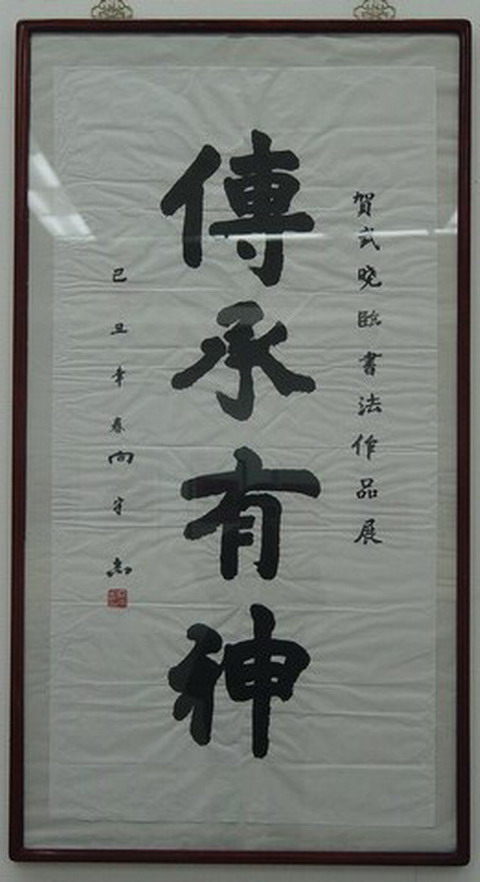 賀武晓臨書法作品展
傳承有神
己丑年春向守志